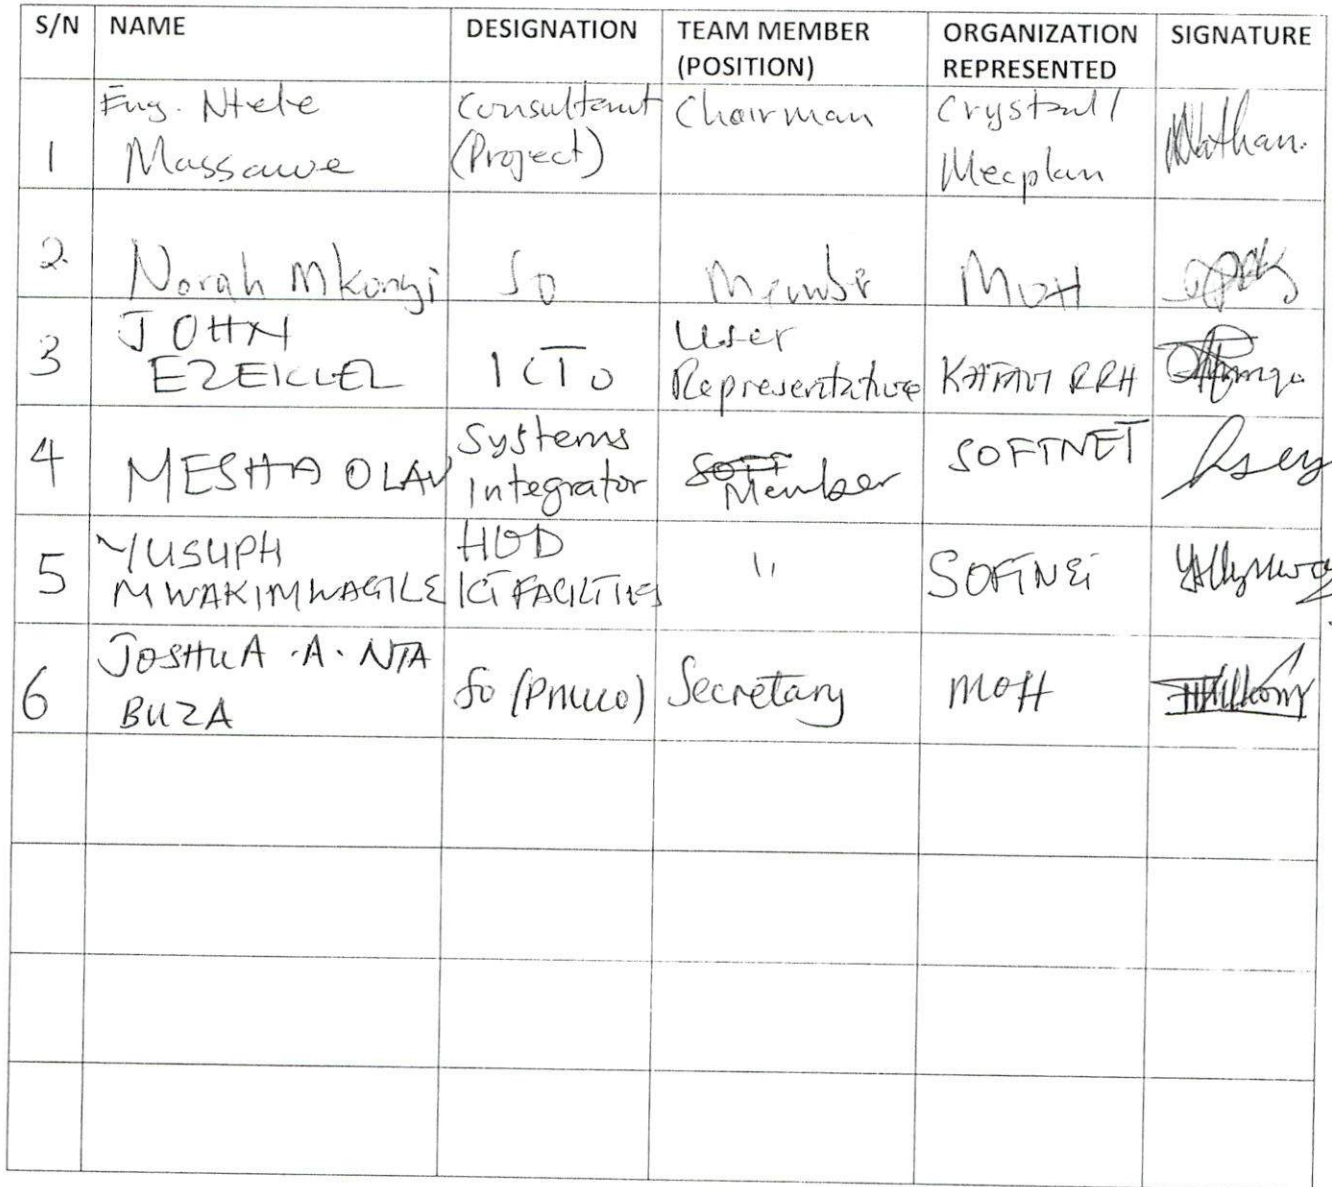 S/N NAME DESIGNATION TEAM MEMBER (POSITION) ORGANIZATION REPRESENTED SIGNATURE
1 Eng. Ntele Massawe Consultant (Project) Chairman Crystal / Mecplan Nathan.
2. Norah Mkonyi SO Member MOH
3 JOHN EZEKIEL ICTO User Representative KATAVI RRH
4 MESHA OLAV Systems Integrator Member SOFTNET
5 YUSUPH MWAKIMWAGILE HOD ICT FACILITIES " SOFTNET
6 JOSHUA .A. NTABUZA SO (PMUO) Secretary MOH